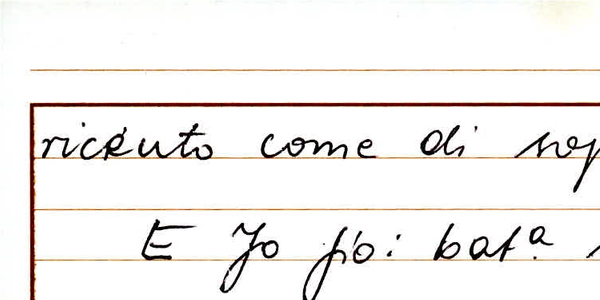 riceuto come di sop
E Jo Gio: bat.ª